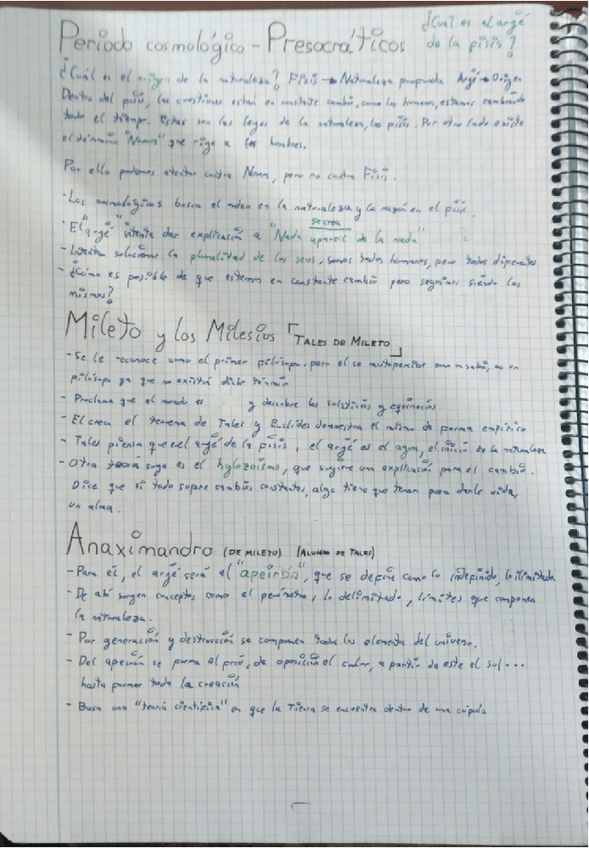 ¿Cuál es el argé
de la fisis?
Período cosmológico - Presocráticos
¿Cuál es el origen de la naturaleza? Fisis → Naturaleza Argé → Origen
Dentro del fisis, las cuestiones están en constante cambio, como los humanos, estamos cambiando
todo el tiempo. Estas son las leyes de la naturaleza, los fisis. Por otro lado existe
el término "Nomos" que rige a los hombres.
Por ello podemos atentar contra Nomos, pero no contra Fisis.
- Los cosmológicos busca el orden en la naturaleza y la razón en el fisis.
- El "argé" intenta dar explicación a "Nada se crea apareix de la nada"
- Intentan solucionar la pluralidad de los seres, somos todos humanos, pero todos diferentes
- ¿Cómo es posible de que estemos en constante cambio pero seguimos siendo los
mismos?
Mileto y los Milesios [TALES DE MILETO]
- Se le reconoce como el primer filósofo, pero él se autopercibe como sabio, no un
filósofo ya que no existía dicho término
- Proclama que el mundo es y descubre los solsticios y equinoccios
- Él crea el teorema de Tales y Euclides demuestra el mismo de forma empírica
- Tales piensa que el argé de la fisis, el argé es el agua, el inicio es la naturaleza
- Otra teoría suya es el hylozoismo, que sugiere una explicación para el cambio.
Dice que si todo sufre cambios constantes, algo tiene que tener para darle vida,
un alma.
Anaximandro (DE MILETO) (ALUMNO DE TALES)
- Para él, el argé será el "apeirón", que se define como lo indefinido, lo ilimitado.
- De ahí surgen conceptos como el perímetro, lo delimitado, límites que componen
la naturaleza.
- Por generación y destrucción se componen todos los elementos del universo.
- Del apeirón se forma el frío, de oposición el calor, a partir de este el sol...
hasta formar toda la creación
- Basa una "teoría científica" en que la Tierra se encuentra dentro de una cúpula